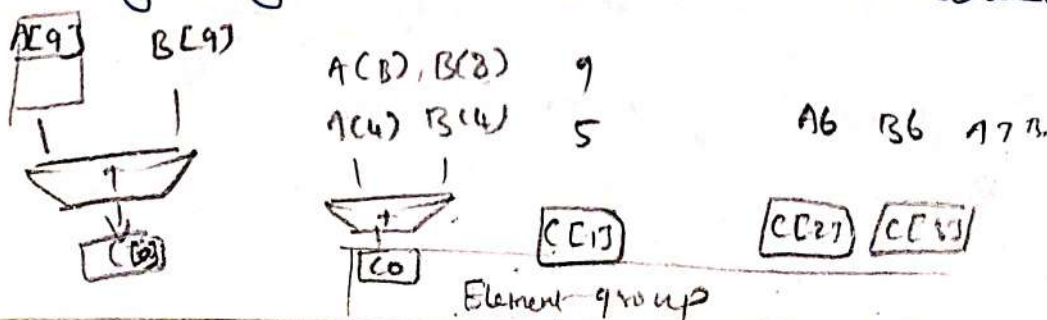 A[9] B[9]
A(B), B(8) 9
A(4) B(4) 5 A6 B6 A7 B.
+ +
C[0] C0 C[1] C[2] C[3]
Element group